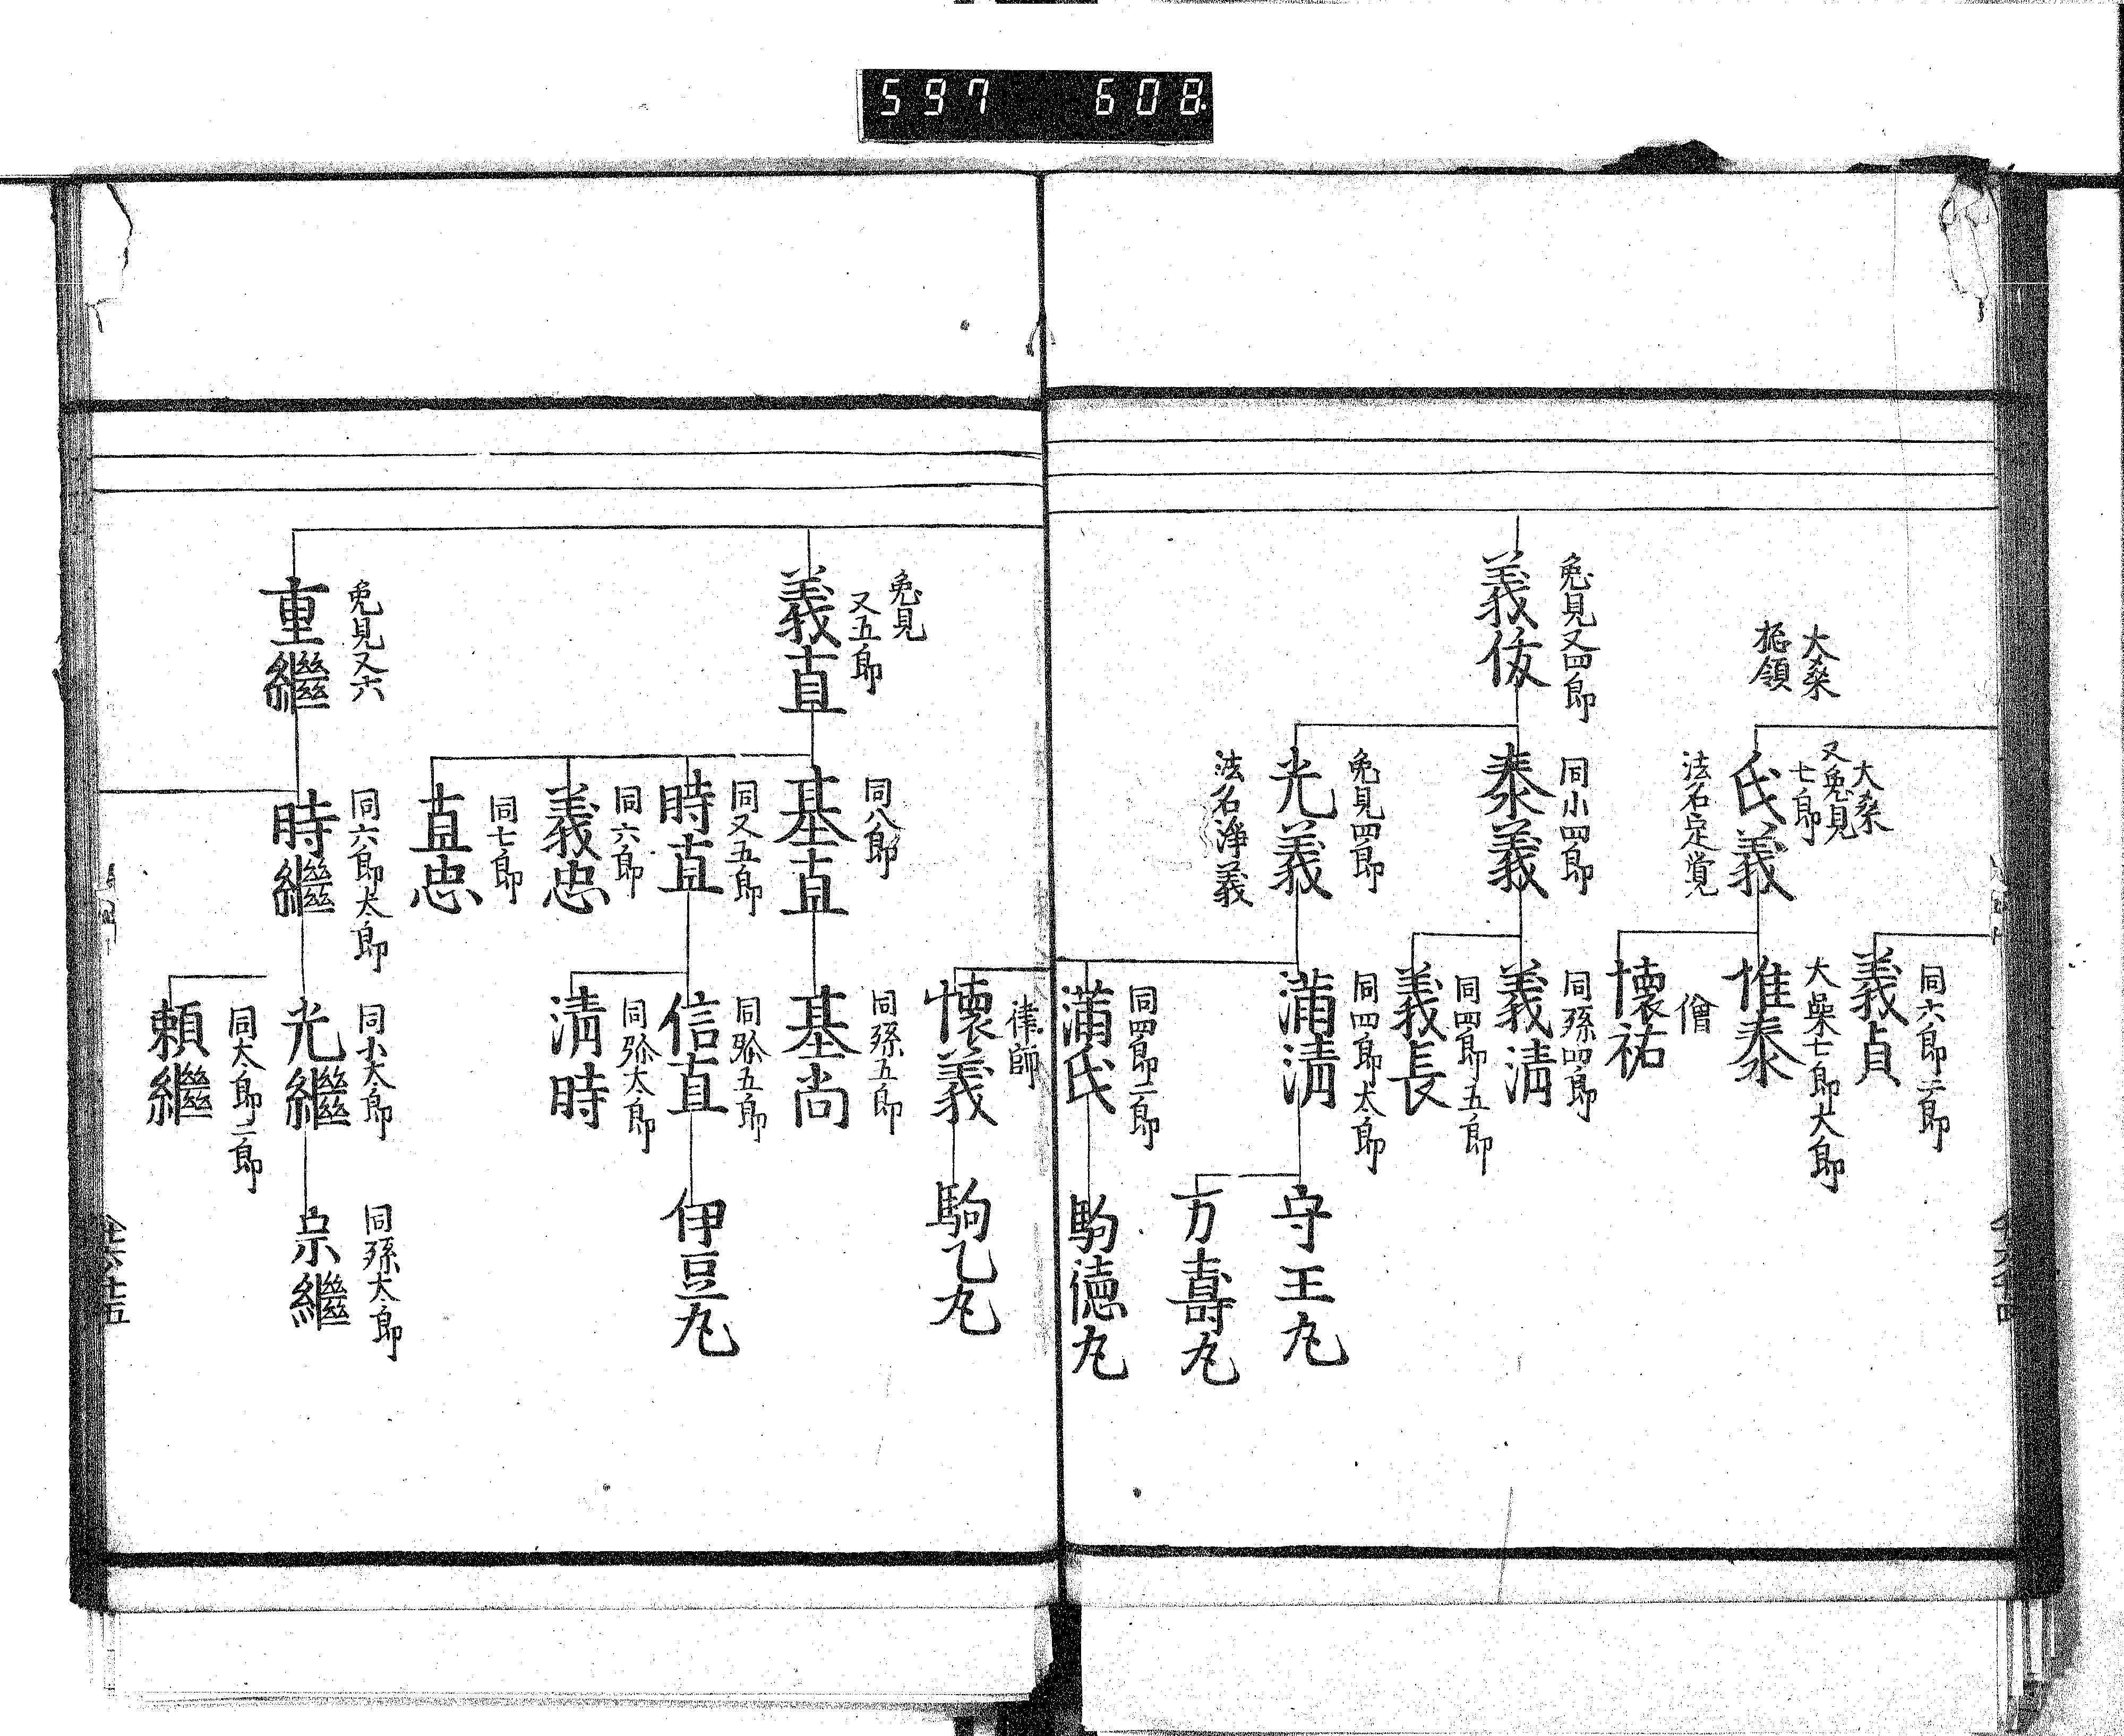 597 608
同六郎二郎
義貞
大桑
惣領
大桑
又兔見
七郎
氏義
法名定覚
大桑七郎太郎
惟泰
僧
懐祐
兔見又四郎
義俊
同小四郎
泰義
同孫四郎
義清
同四郎五郎
義長
兔見四郎
光義
法名淨義
同四郎太郎
満清
守王丸
万壽丸
同四郎二郎
満氏
駒德丸
律師
懐義
駒乙丸
兔見
又五郎
義直
同八郎
基直
同孫五郎
基尚
同又五郎
時直
同弥五郎
信直
伊豆丸
同弥太郎
清時
同六郎
義忠
同七郎
直忠
兔見又六
重繼
同六郎太郎
時繼
同小太郎
光繼
同孫太郎
宗繼
同太郎二郎
頼繼